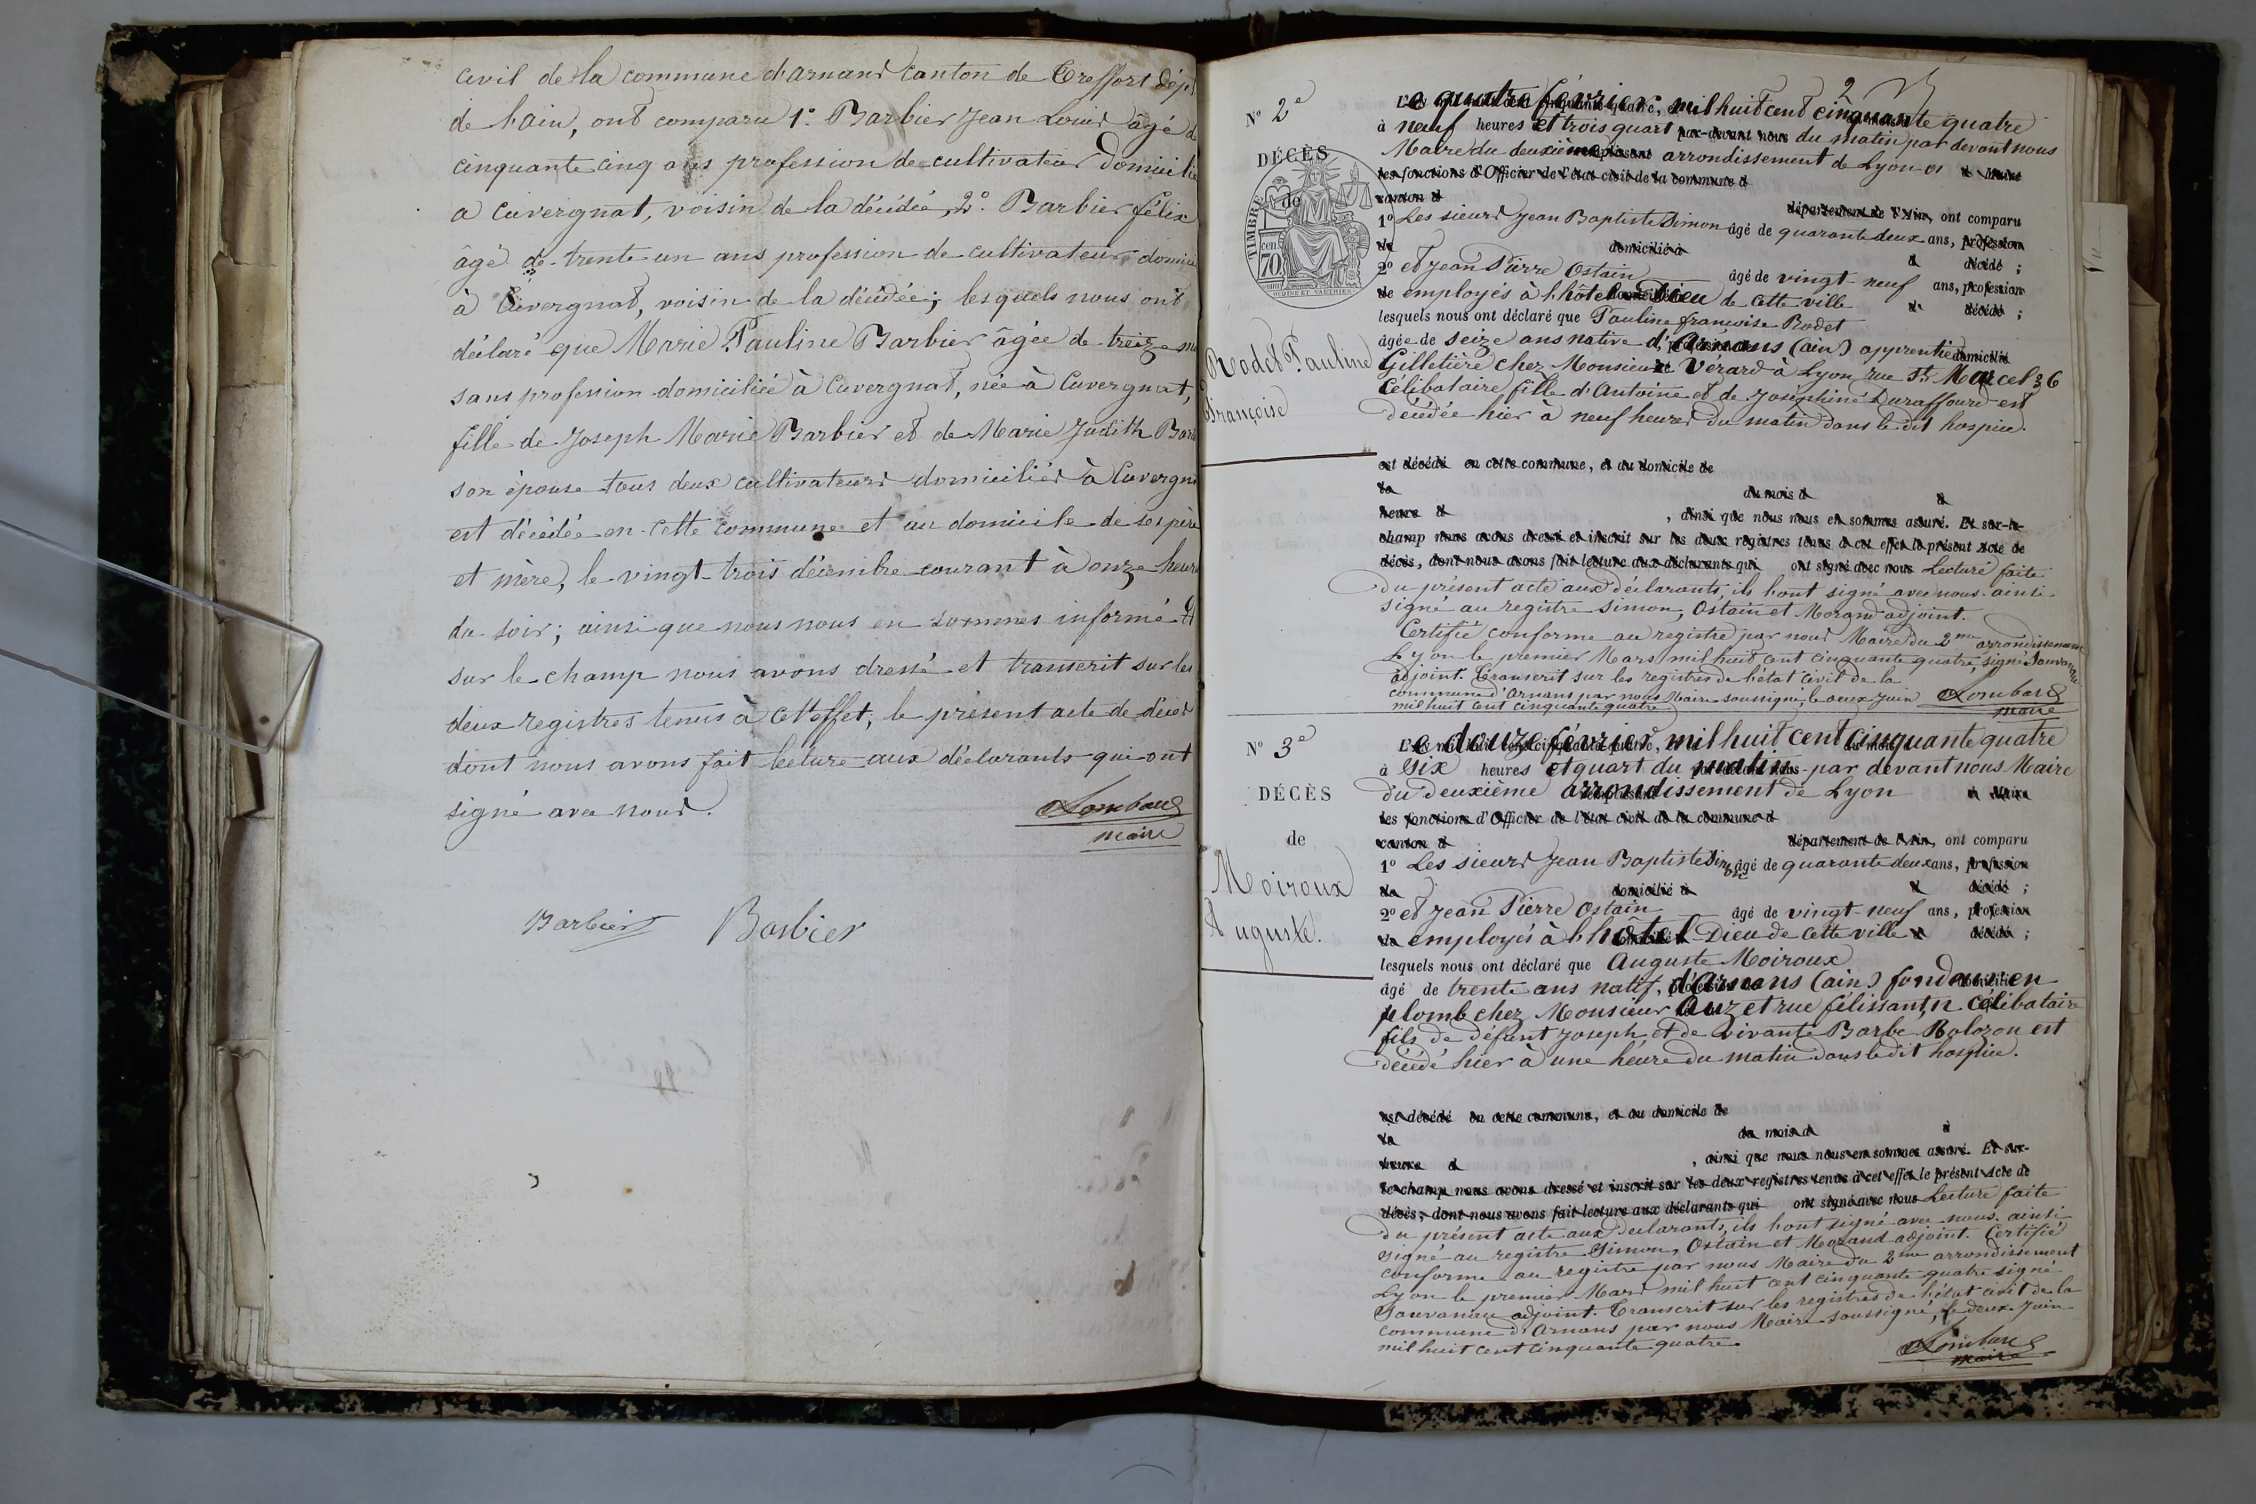 civil de la commune d'arnans canton de Treffort dép
de l'ain, ont comparu 1°. Barbier Jean Louis âgé d
cinquante cinq ans profession de cultivateur domicilié
a Cuvergnat, voisin de la décédée, 2°. Barbier félix
âgé de trente un ans profession de cultivateur domici
à Cuvergnat, voisin de la décédée; lesquels nous ont
déclaré que Marie Pauline Barbier âgée de treize
sans profession domiciliée à Cuvergnat, née à Cuvergnat,
fille de Joseph Marie Barbier et de Marie Judith Bar
son épouse tous deux cultivateurs domiciliés à Cuvergn
est décédée en cette commune et au domicile de ses père
et mère, le vingt-trois décembre courant à onze heure
du soir; ainsi que nous nous en sommes informé. Et
sur le champ nous avons dressé et transcrit sur les
deux registres tenus à cet effet, le présent acte de décès
dont nous avons fait lecture aux déclarants qui ont
signé avec nous.
Lombard
maire
Barbier Barbier
2
N° 2e
DÉCÈS
de
TIMBRE
70 cen
Rodet Pauline
Françoise
Le quatre février mil huit cent cinquante quatre
à neuf heures et trois quart par-devant nous du matin par devant nous
Maire du deuxième arrondissement de Lyon
les fonctions d'Officier de l'état civil de la commune d
canton d département de l'Ain, ont comparu
1° Les sieurs Jean Baptiste Simon âgé de quarante deux ans, profession
de domicilié à d décédé ;
2° et Jean Pierre Ostain âgé de vingt-neuf ans, profession
de employés à l'hôtel-Dieu de cette ville d décédé ;
lesquels nous ont déclaré que Pauline françoise Rodet
âgée de seize ans native d'Arnans (ain) apprentie domicilié
Gilletière chez Monsieur Vérard à Lyon rue St Marcel 36
Célibataire fille d'Antoine et de Joséphine Duraffourd est
décédée hier à neuf heures du matin dans le dit hospice.
est décédé en cette commune, et au domicile de
la du mois d à
heure d , ainsi que nous nous en sommes assuré. Et sur-le-
champ nous avons dressé et inscrit sur les deux registres tenus à cet effet le présent Acte de
décès, dont nous avons fait lecture aux déclarants qui ont signé avec nous Lecture faite
du présent acte aux déclarants, ils l'ont signé avec nous. ainsi
signé au registre Simon, Ostain et Morand adjoint.
Certifié conforme au registre par nous Maire du 2me arrondissement
Lyon le premier Mars mil huit cent cinquante quatre, signé Sauvanau
adjoint. Transcrit sur les registres de l'état civil de la
commune d'Arnans par nous Maire soussigné, le deux Juin
mil huit cent cinquante quatre
Lombard
maire
N° 3e
DÉCÈS
de
Moiroux
Auguste.
Le douze février mil huit cent cinquante quatre
à six heures et quart du matin par devant nous Maire
du deuxième arrondissement de Lyon d Maire
les fonctions d'Officier de l'état civil de la commune d
canton d département de l'Ain, ont comparu
1° Les sieurs Jean Baptiste Simon âgé de quarante deux ans, profession
de domicilié à d décédé ;
2° et Jean Pierre Ostain âgé de vingt-neuf ans, profession
de employés à l'hôtel-Dieu de cette ville d décédé ;
lesquels nous ont déclaré que Auguste Moiroux
âgé de trente ans natif, d'Arnans (ain) fondeur en
plomb chez Monsieur rue félissant, Célibataire
fils de défunt Joseph et de vivante Barbe Bolozon est
décédé hier à une heure du matin dans le dit hospice.
est décédé en cette commune, et au domicile de
la du mois d à
heure d , ainsi que nous nous en sommes assuré. Et sur-
le-champ nous avons dressé et inscrit sur les deux registres tenus à cet effet le présent Acte de
décès; dont nous avons fait lecture aux déclarants qui ont signé avec nous Lecture faite
du présent acte aux déclarants, ils l'ont signé avec nous. ainsi
signé au registre Simon, Ostain et Morand adjoint. Certifié
conforme au registre par nous Maire du 2me arrondissement
Lyon le premier Mars mil huit cent cinquante quatre signé
Sauvanau adjoint. Transcrit sur les registres de l'état civil de la
commune d'Arnans par nous Maire soussigné, le deux Juin
mil huit cent cinquante quatre.
Lombard
maire